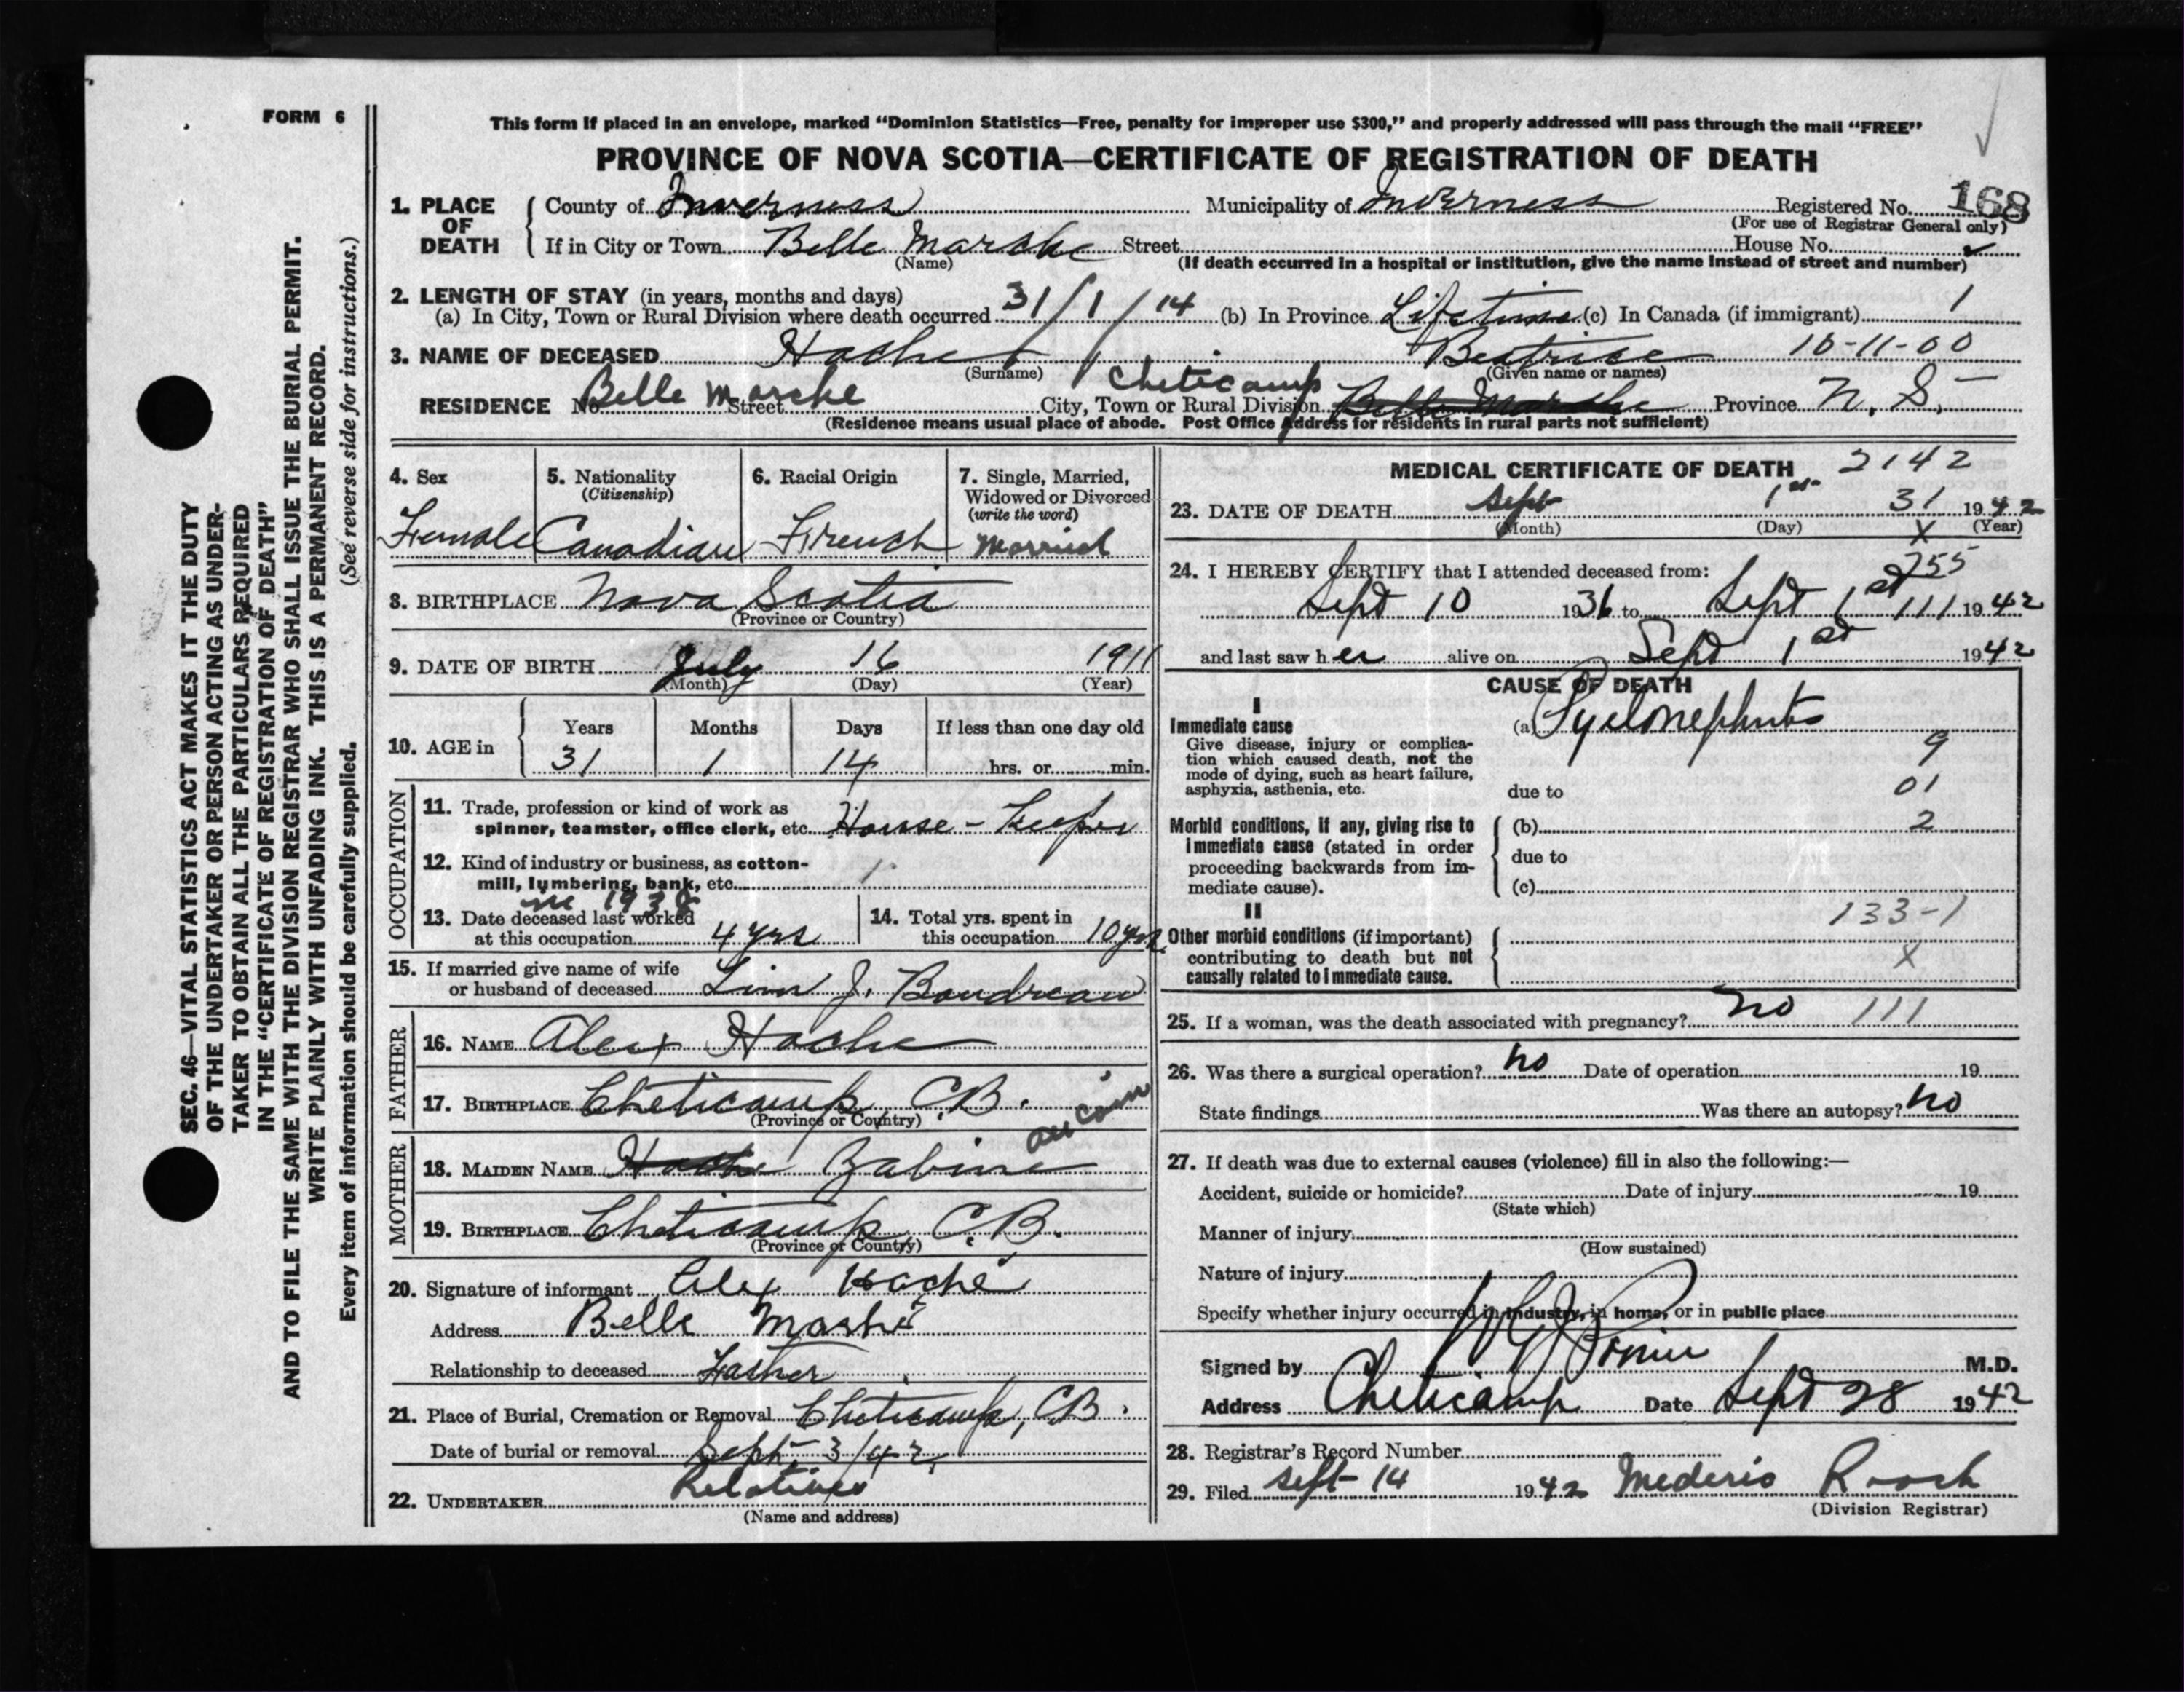 FORM 6
This form if placed in an envelope, marked "Dominion Statistics—Free, penalty for improper use $300," and properly addressed will pass through the mail "FREE"
PROVINCE OF NOVA SCOTIA—CERTIFICATE OF REGISTRATION OF DEATH
1. PLACE OF DEATH { County of Inverness Municipality of Inverness Registered No. 168
(For use of Registrar General only)
If in City or Town Belle Marche Street House No.
(Name) (If death occurred in a hospital or institution, give the name instead of street and number)
2. LENGTH OF STAY (in years, months and days)
(a) In City, Town or Rural Division where death occurred 31/1/14 (b) In Province Lifetime (c) In Canada (if immigrant)
3. NAME OF DECEASED Hache Beatrice 10-11-00
(Surname) (Given name or names)
Cheticamp
RESIDENCE No. Belle Marche Street City, Town or Rural Division Belle Marche Province N. S.
(Residence means usual place of abode. Post Office Address for residents in rural parts not sufficient)
4. Sex 5. Nationality (Citizenship) 6. Racial Origin 7. Single, Married, Widowed or Divorced (write the word)
Female Canadian French Married
8. BIRTHPLACE Nova Scotia
(Province or Country)
9. DATE OF BIRTH July 16 1911
(Month) (Day) (Year)
10. AGE in { Years Months Days If less than one day old
31 1 14 hrs. or min.
OCCUPATION
11. Trade, profession or kind of work as
spinner, teamster, office clerk, etc. House-Keeper
12. Kind of industry or business, as cotton-
mill, lumbering, bank, etc.
in 1938
13. Date deceased last worked
at this occupation 4 yrs
14. Total yrs. spent in
this occupation 10 yrs.
15. If married give name of wife
or husband of deceased J. Boudreau
FATHER
16. NAME Alex Hache
17. BIRTHPLACE Cheticamp, C.B.
(Province or Country)
MOTHER
18. MAIDEN NAME Hache Zabine aucoin
19. BIRTHPLACE Cheticamp C.B.
(Province or Country)
20. Signature of informant Alex Haché
Address Belle Marche
Relationship to deceased Father
21. Place of Burial, Cremation or Removal Cheticamp, C.B.
Date of burial or removal Sept 3/42
22. UNDERTAKER Relatives
(Name and address)
MEDICAL CERTIFICATE OF DEATH 2142
23. DATE OF DEATH Sept 1st 31 1942
(Month) (Day) X (Year)
24. I HEREBY CERTIFY that I attended deceased from: 755
Sept 10 1936 to Sept 1st 111 1942
and last saw her alive on Sept 1st 1942
CAUSE OF DEATH
I
Immediate cause (a) Pyelonephritis
Give disease, injury or complica-
tion which caused death, not the
mode of dying, such as heart failure,
asphyxia, asthenia, etc.
9
due to 01
Morbid conditions, if any, giving rise to
immediate cause (stated in order
proceeding backwards from im-
mediate cause).
(b) 2
due to
(c)
II 133-1
Other morbid conditions (if important)
contributing to death but not
causally related to immediate cause.
X
25. If a woman, was the death associated with pregnancy? no 111
26. Was there a surgical operation? no Date of operation 19
State findings Was there an autopsy? no
27. If death was due to external causes (violence) fill in also the following:—
Accident, suicide or homicide? Date of injury 19
(State which)
Manner of injury
(How sustained)
Nature of injury
Specify whether injury occurred in industry, in home, or in public place
Signed by M.D.
Address Cheticamp Date Sept 28 1942
28. Registrar's Record Number
29. Filed Sept 14 1942 Mederic Roach
(Division Registrar)
SEC. 46—VITAL STATISTICS ACT MAKES IT THE DUTY
OF THE UNDERTAKER OR PERSON ACTING AS UNDER-
TAKER TO OBTAIN ALL THE PARTICULARS REQUIRED
IN THE "CERTIFICATE OF REGISTRATION OF DEATH"
AND TO FILE THE SAME WITH THE DIVISION REGISTRAR WHO SHALL ISSUE THE BURIAL PERMIT.
WRITE PLAINLY WITH UNFADING INK. THIS IS A PERMANENT RECORD.
Every item of information should be carefully supplied. (See reverse side for instructions.)